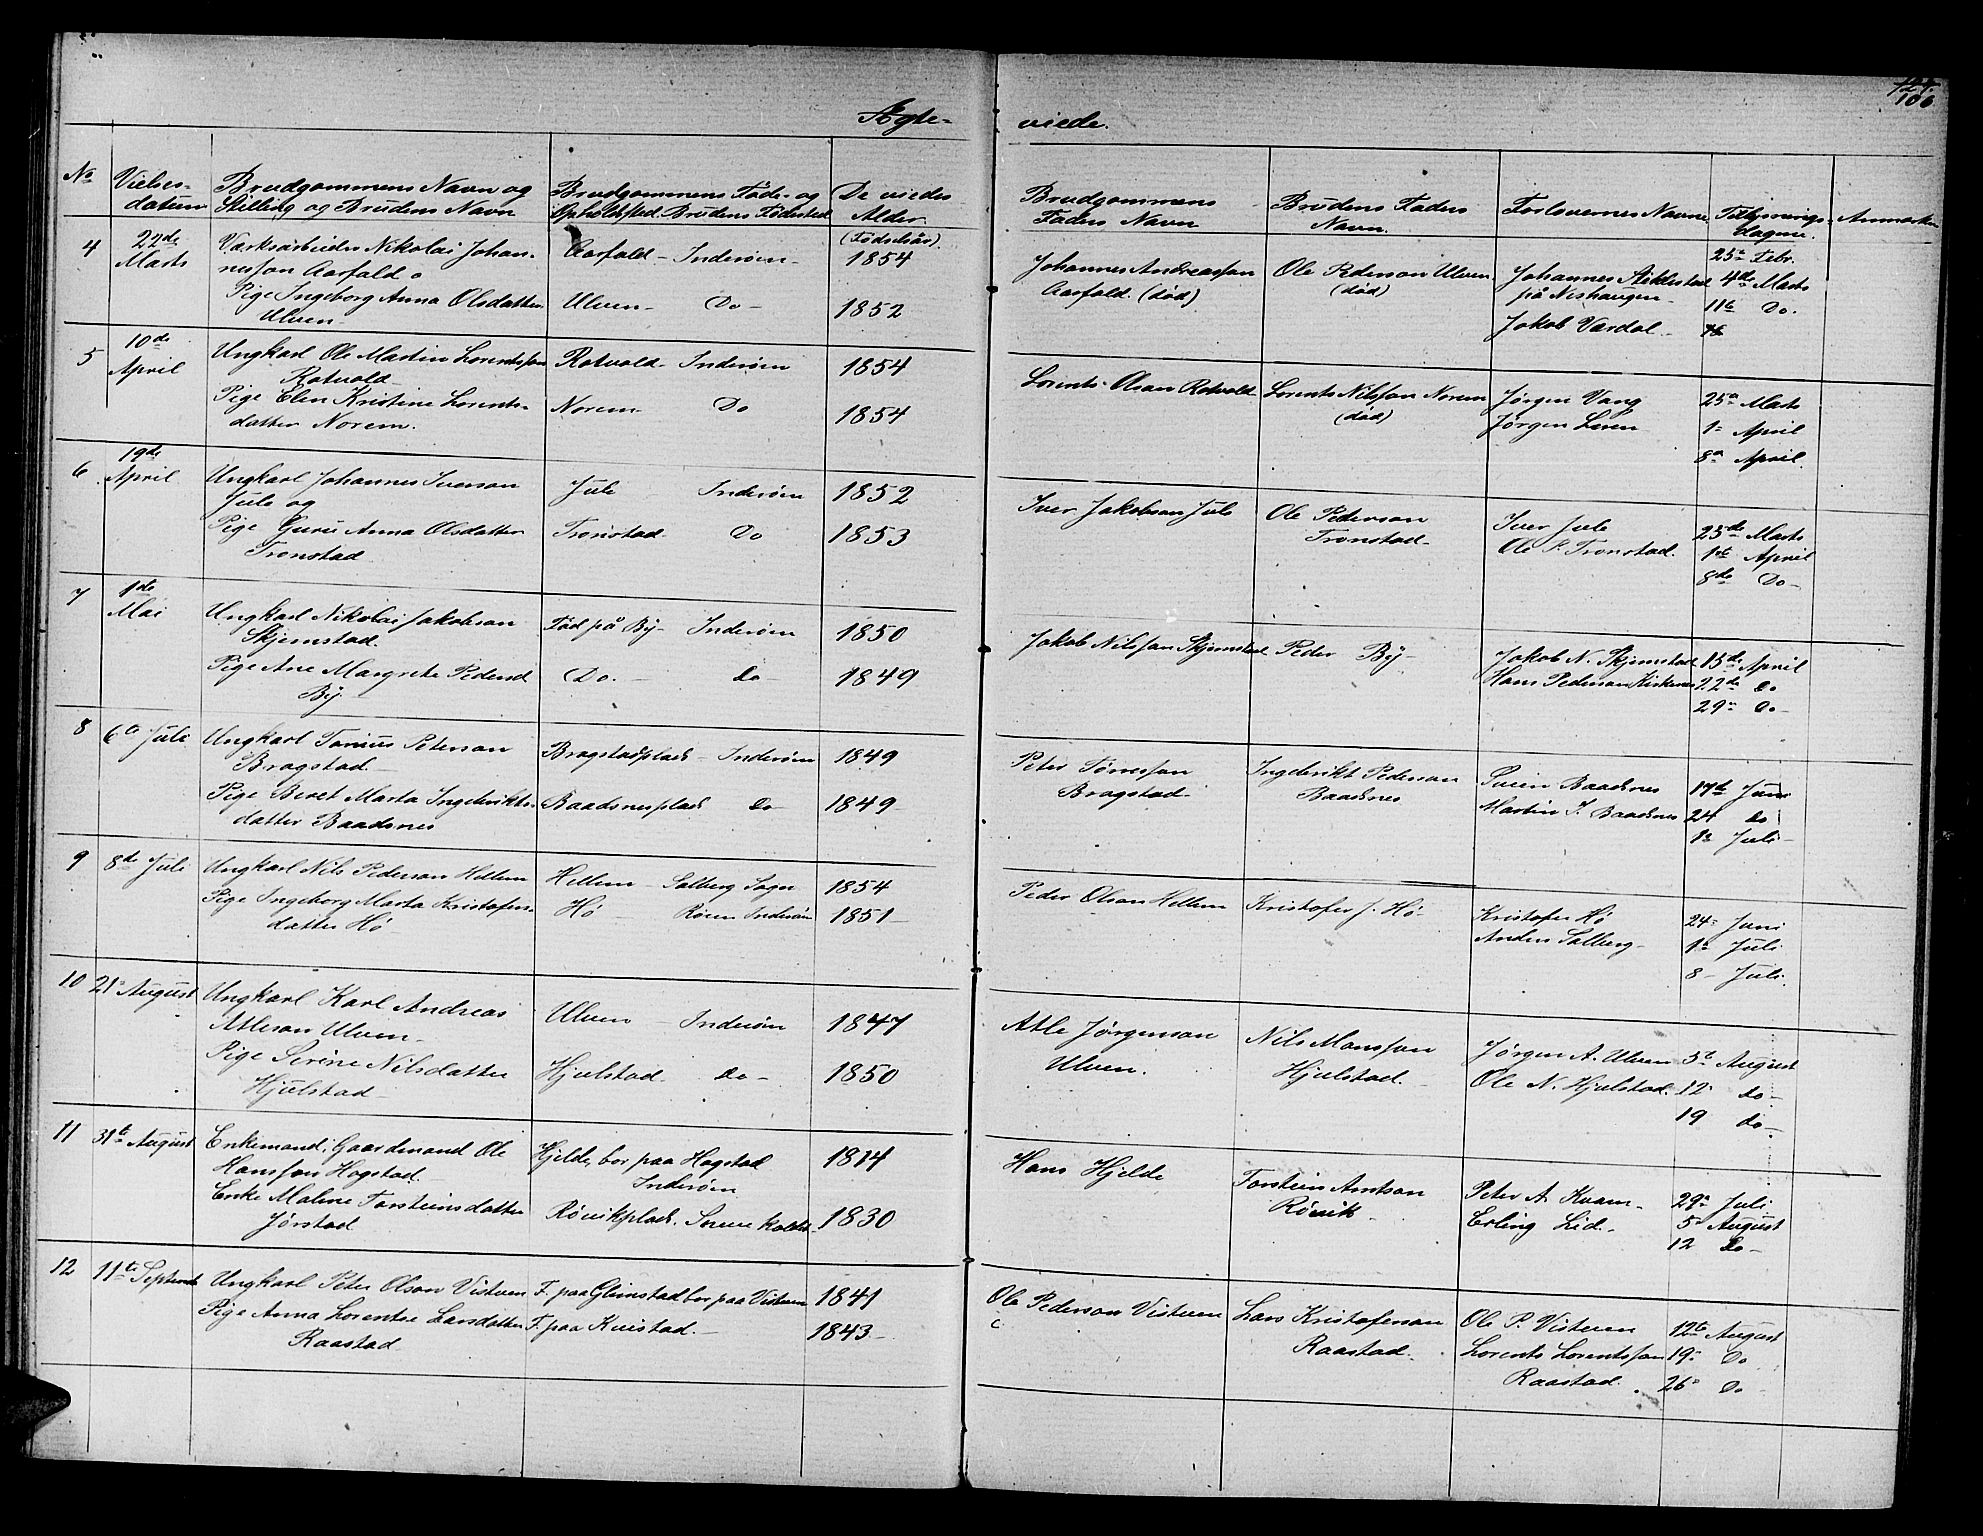 124.
106
Ægte- viede.
No
Vielses-
datum
Brudgommens Navn og
Stilling og Brudens Navn
Brudgommens Føde- og
Opholdsted. Brudens Fødested
De viedes
Alder
(Fødselsår).
Brudgommens
Faders Navn
Brudens Faders
Navn.
Forlovernes Navne
Tillysnings-
dagene.
Anmærkn
4
22de
Marts
Værksarbeider Nikolai Johan-
nesson Aarfald o
Pige Ingeborg Anna Olsdatter
Ulven
Aarfald - Inderøen -
Ulven - Do -
1854
1852
Johannes Andreasson
Aarfald. (død)
Ole Pederson Ulven
(død)
Johannes Stiklestad
på Neshaugen
Jakob Værdal
25de Febr.
4de Marts
11te Do.
5
10de
April
Ungkarl Ole Martin Lorentsson
Rotvold
Pige Elen Kristine Lorents-
datter Norem.
Rotvold - Inderøen
Norem - Do
1854
1854
Lorents Olson Rotvold
Lorents Nilsson Norem
(død)
Jørgen Vang
Jørgen Leren
25de Marts
1- April
8de April.
6
19de
April
Ungkarl Johannes Iverson
Jule og
Pige Guru Anna Olsdatter
Tronstad
Jule Inderøen
Tronstad. Do
1852
1853
Iver Jakobson Jule
Ole Pederson
Tronstad
Iver Jule
Ole P. Tronstad.
25de Marts
1ste April
8de Do -
7
1de
Mai
Ungkarl Nikolai Jakobson
Skjemstad.
Pige Ane Margrete Pedersd
By
Fød på By - Inderøen
Do. - do -
1850
1849
Jakob Nilsson Skjemstad
Peder By -
Jakob N. Skjemstad
Hans Pederson Kirkenes
15de April
22de do
29de do -
8
6te Juli
Ungkarl Tonius Peterson
Bragstad.
Pige Beret Marta Ingebrikts-
datter Baadsnes
Bragstadplads - Inderøen
Baadsnesplads do -
1849
1849
Peter Tørresson
Bragstad.
Ingebrikt Pederson
Baadsnes
Svein Baadsnes
Martin I. Baadsnes
17de Juni
24 do
1ste Juli -
9
8de Juli
Ungkarl Nils Pederson Hellem
Pige Ingeborg Marta Kristofers-
datter Hø
Hellem - Salberg Sogn
Hø - Røren Inderøen
1854
1851
Peder Olson Hellem
Kristofer J. Hø.
Kristofer Hø
Anders Salberg -
24- Juni
1ste Juli
8 - Juli.
10
21- August
Ungkarl Karl Andreas
Atleson Ulven -
Pige Serine Nilsdatter
Hjulstad
Ulven - Inderøen
Hjulstad. do -
1847
1850
Atle Jørgenson
Ulven.
Nils Monsson
Hjulstad.
Jørgen A. Ulven
Ole N. Hjulstad.
5te August
12 do -
19 do -
11
31te August
Enkemand, Gaardmand Ole
Hansson Hogstad.
Enke Malene Torsteinsdatter
Jørstad
Hjelde, bor paa Hogstad
Inderøen
Røvikplads.
1814
1830
Hans Hjelde
Torstein Arntson
Røvik
Peter A. Kvam -
Erling Lid. -
29de Juli
5- August
12 do -
12
11te Septemb
Ungkarl Peter Olson Vistven
Pige Anna Lorentse Larsdatter
Raastad
F. paa Glimstad bor paa Vistven
F. paa Kvistad. -
1841
1843
Ole Pederson Vistven
Lars Kristoferson
Raastad.
Ole P. Vistven
Lorents Lorentsson
Raastad.
12te August
19- Do
26- Do -